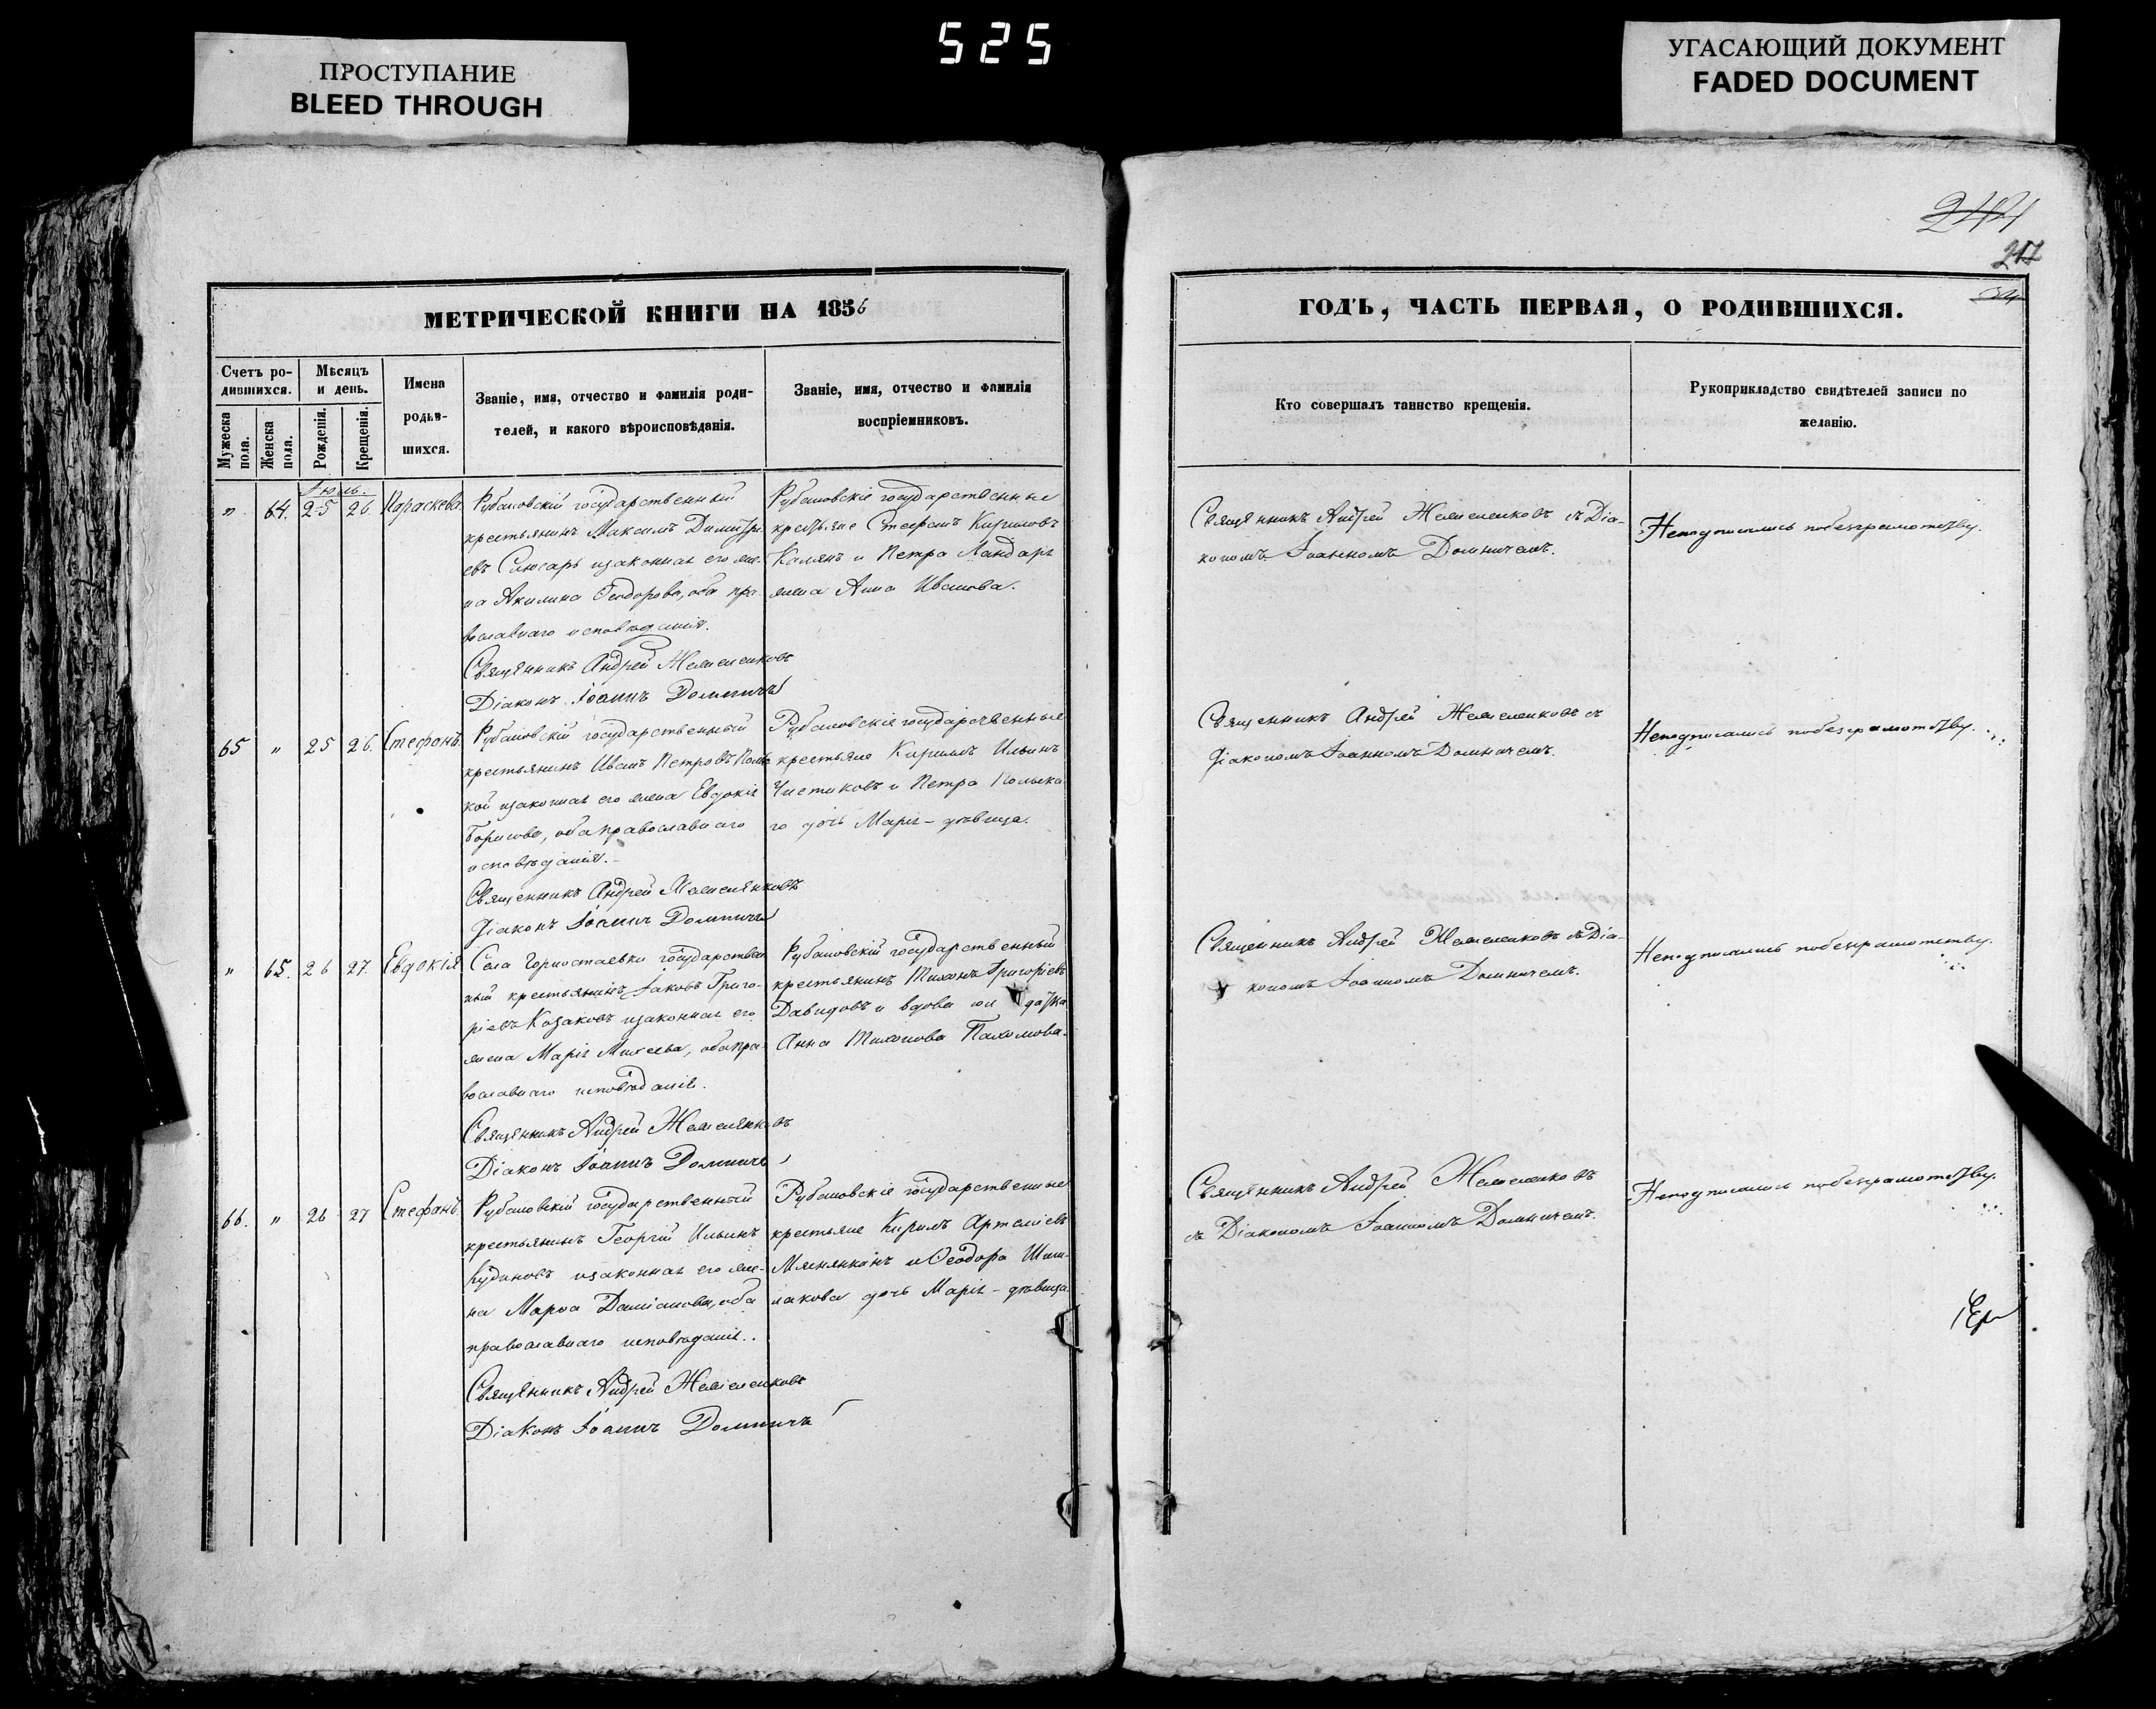 525
ПРОСТУПАНИЕ
BLEED THROUGH
УГАСАЮЩИЙ ДОКУМЕНТ
FADED DOCUMENT
217
МЕТРИЧЕСКОЙ КНИГИ НА 1856
Счетъ ро-
дившихся.
Мѣсяцъ
и день.
Мужеска
пола.
Женска
пола.
Рожденія.
Крещенія.
Имена
родив-
шихся.
Званіе, имя, отчество и фамилія роди-
телей, и какого вѣроисповѣданія.
Званіе, имя, отчество и фамилія
воспріемниковъ.
" 64. 25 26. Параскева.
Рубановскій государственный
крестьянинъ Максимъ Димитрі-
евъ Слюсарь изаконная его же-
на Акилина Ѳеодорова, оба пра-
вославнаго исповѣданія.
Священникъ Андрей
Діаконъ Іоаннъ
Рубановскіе государственные
крестьяне Стефанъ Кириловъ
и Петра
жена Анна Иванова.
65 " 25 26. Стефанъ.
Рубановскій государственный
крестьянинъ Иванъ Петровъ Поль-
кой изаконная его жена Евдокія
Борисова, оба православнаго
исповѣданія.
Священникъ Андрей
Діаконъ Іоаннъ
Рубановскіе государственные
крестьяне Кирилъ Ильинъ
Чистиковъ и Петра Полька
го дочь Марія - дѣвица.
" 65. 26 27. Евдокія
Села Горностаевки государствен
ный крестьянинъ Іаковъ Григо-
ріевъ Козаковъ изаконная его
жена Марія Михеева, оба пра-
вославнаго исповѣданія.
Священникъ Андрей
Діаконъ Іоаннъ
Рубановскій государственный
крестьянинъ Тихонъ Григоріевъ
Давидовъ и вдова
Анна Тихонова Пахомова.
66. " 26 27 Стефанъ.
Рубановскій государственный
крестьянинъ Георгій Ильинъ
Кудиновъ изаконная его же-
на Марѳа Даміанова, оба
православнаго исповѣданія.
Священникъ Андрей
Діаконъ Іоаннъ
Рубановскіе государственные
крестьяне Кирилъ
и Ѳеодора Шин-
дочь Марія - дѣвица.
ГОДЪ, ЧАСТЬ ПЕРВАЯ, О РОДИВШИХСЯ.
Кто совершалъ таинство крещенія.
Рукоприкладство свидѣтелей записи по
желанію.
Священникъ Андрей съ Діа-
кономъ Іоанномъ
Неподписались побезграмотству.
Священникъ Андрей съ
Діакономъ Іоанномъ
Неподписались побезграмотству.
Священникъ Андрей съ Діа-
кономъ Іоанномъ
Неподписались побезграмотству.
Священникъ Андрей
съ Діакономъ Іоанномъ
Неподписались побезграмотству.